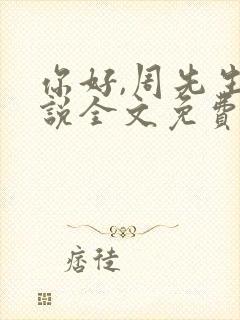 你好,周先生
说全文免费
痞徒